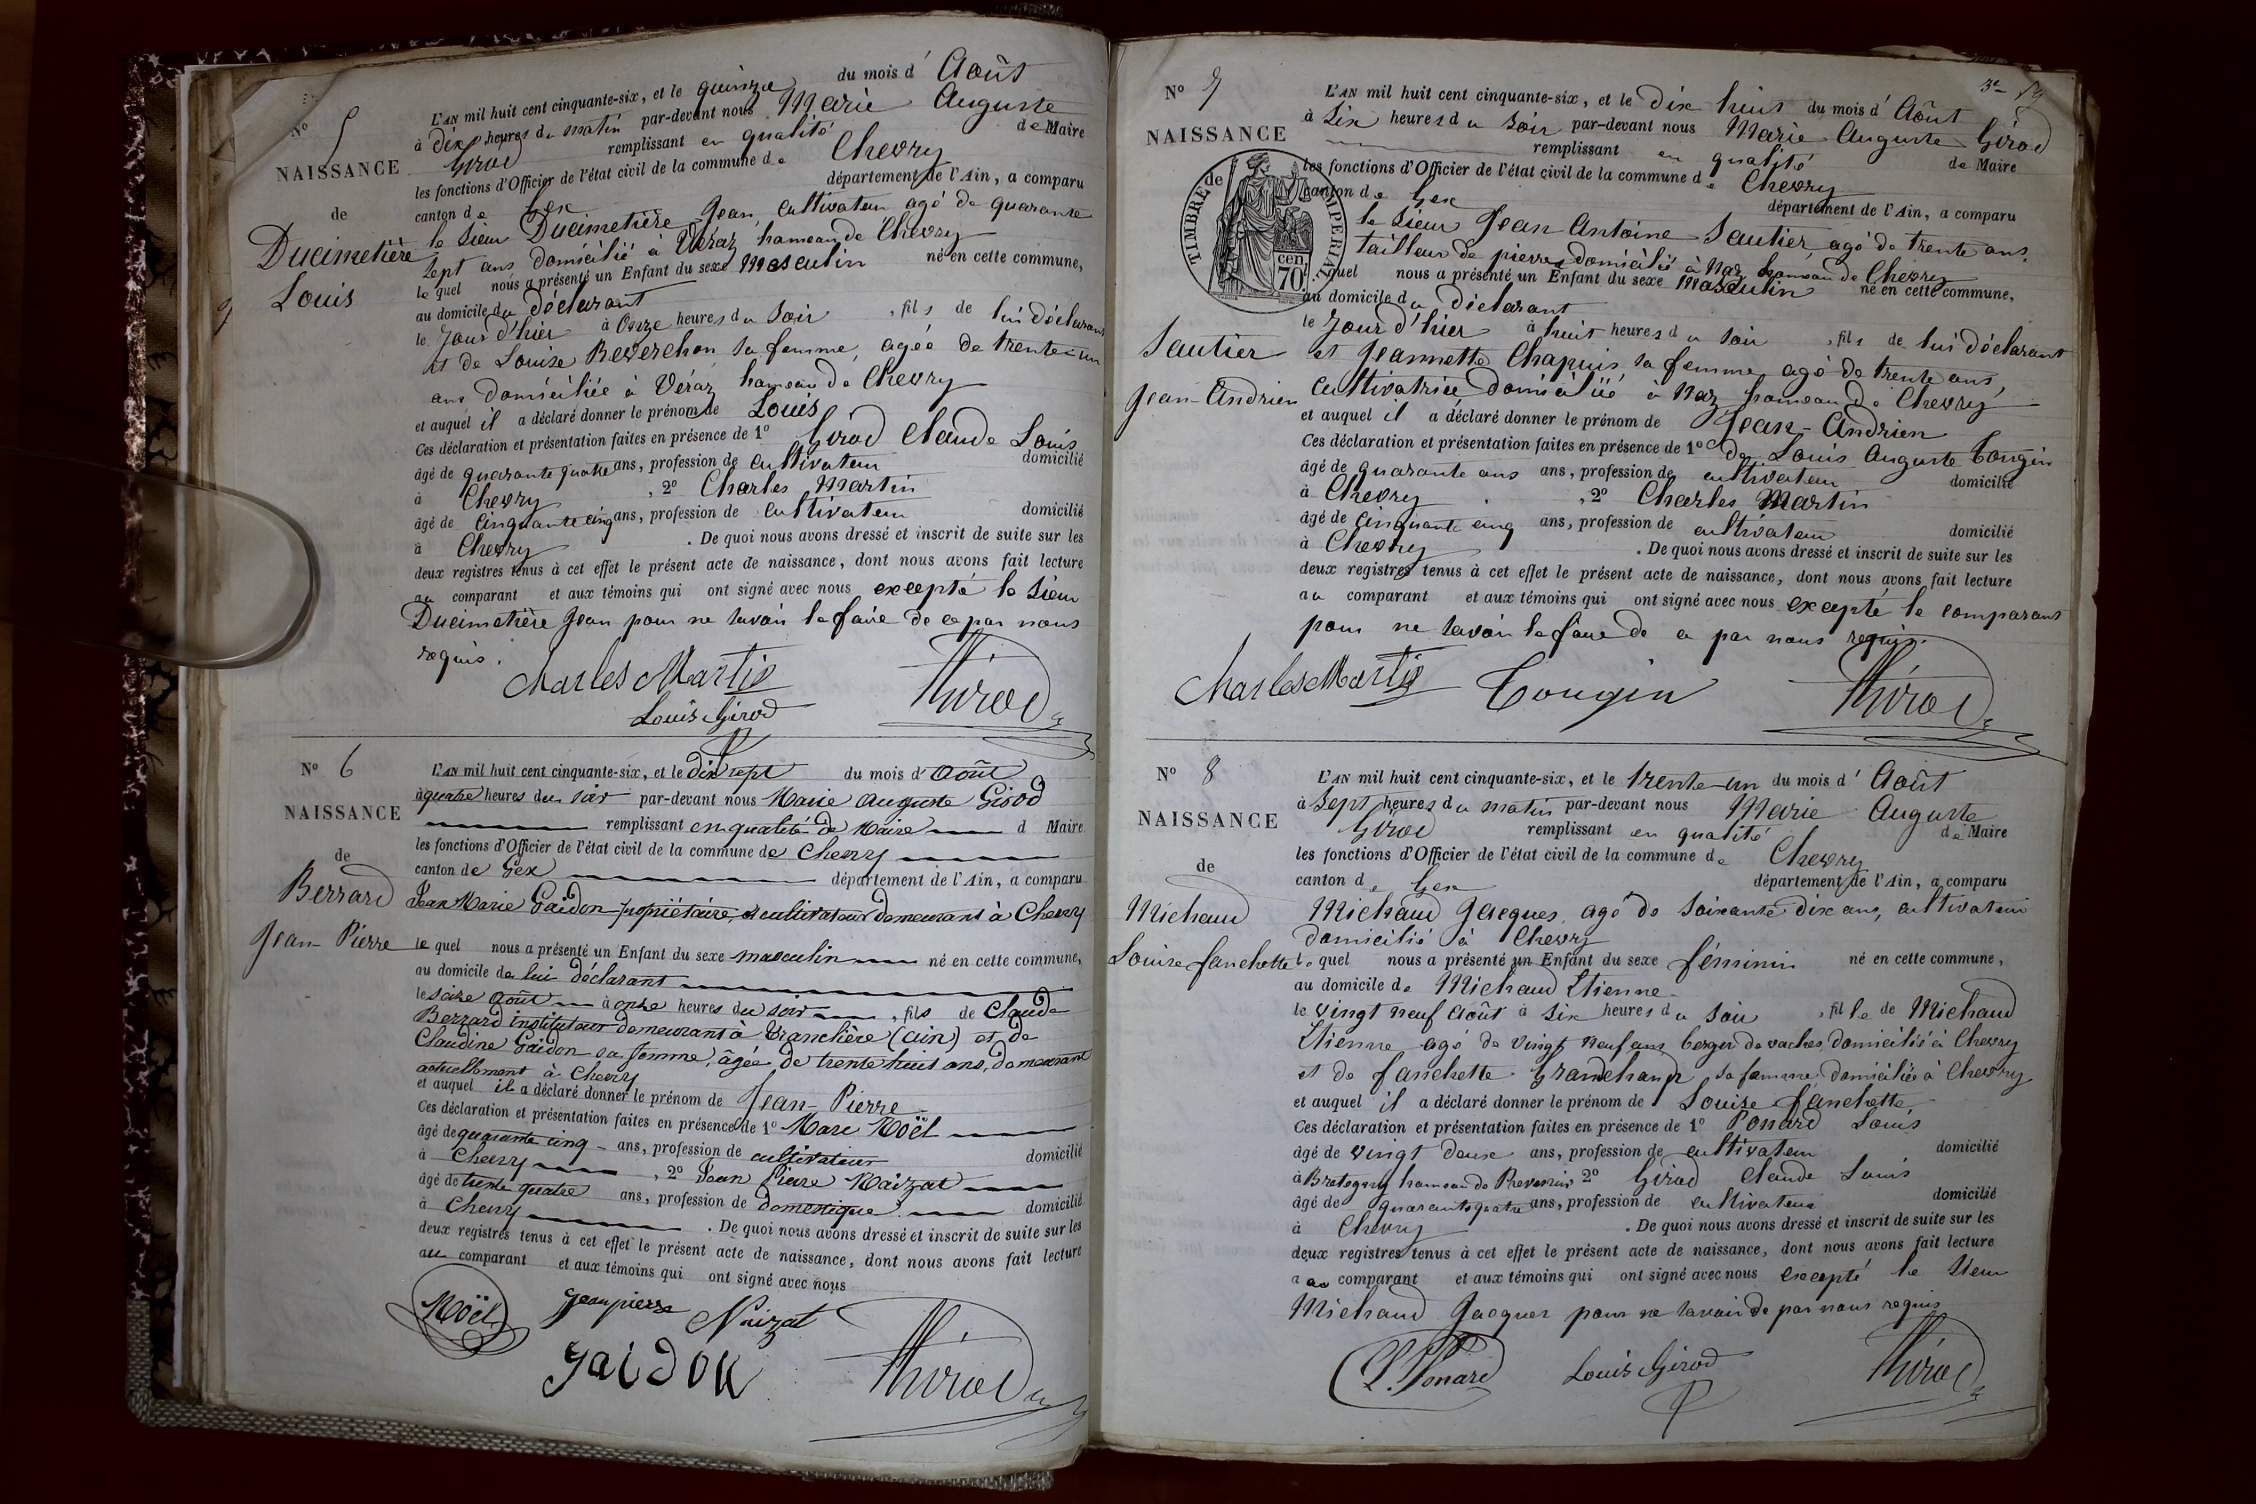 L'AN mil huit cent cinquante-six, et le quinze du mois d' Août
N° 5
à dix heures du matin par-devant nous Marie Auguste
Girod remplissant en qualité de Maire
NAISSANCE
les fonctions d'Officier de l'état civil de la commune de Chevry
canton de Gex département de l'Ain, a comparu
de
le sieur Ducimetière Jean, cultivateur agé de quarante
Ducimetière
sept ans domicilié à Véraz hameau de Chevry
le quel nous a présenté un Enfant du sexe Masculin né en cette commune,
Louis
au domicile du déclarant
le jour d'hier à Onze heures du soir, fils de lui déclarant
et de Louise Reverchon sa femme, agée de trente-un
ans domiciliée à Véraz hameau de Chevry
et auquel il a déclaré donner le prénom de Louis
Ces déclaration et présentation faites en présence de 1° Girod Claude Louis
âgé de quarante quatre ans, profession de cultivateur domicilié
à Chevry, 2° Charles Martin
âgé de cinquante cinq ans, profession de cultivateur domicilié
à Chevry. De quoi nous avons dressé et inscrit de suite sur les
deux registres tenus à cet effet le présent acte de naissance, dont nous avons fait lecture
au comparant et aux témoins qui ont signé avec nous excepté le sieur
Ducimetière Jean pour ne savoir le faire de ce par nous
requis.
Charles Martin
Louis Girod
Girod
N° 6
L'AN mil huit cent cinquante-six, et le dix sept du mois d' août
à quatre heures du soir par-devant nous Marie Auguste Girod
NAISSANCE
remplissant en qualité de Maire d Maire
les fonctions d'Officier de l'état civil de la commune de Chevry
de
canton de Gex département de l'Ain, a comparu
Berrard
Jean Marie Gaidon propriétaire, et cultivateur demeurant à Chevry
Jean-Pierre
le quel nous a présenté un Enfant du sexe masculin né en cette commune,
au domicile de lui déclarant
le seize août à onze heures du soir, fils de Claude
Berrard instituteur demeurant à Tranclière (ain) et de
Claudine Gaidon sa femme, âgée de trente huit ans, demeurant
actuellement à Chevry
et auquel il a déclaré donner le prénom de Jean-Pierre
Ces déclaration et présentation faites en présence de 1° Marc Noël
âgé de quarante cinq ans, profession de cultivateur domicilié
à Chevry, 2° Jean Pierre Naizat
âgé de trente quatre ans, profession de domestique domicilié
à Chevry. De quoi nous avons dressé et inscrit de suite sur les
deux registres tenus à cet effet le présent acte de naissance, dont nous avons fait lecture
au comparant et aux témoins qui ont signé avec nous
Noël
Jean pierre Naizat
gaidon
Girod
N° 7
L'AN mil huit cent cinquante-six, et le dix huit du mois d' Août
à Six heures du soir par-devant nous Marie Auguste Girod
NAISSANCE
remplissant en qualité de Maire
les fonctions d'Officier de l'état civil de la commune de Chevry
de
canton de Gex département de l'Ain, a comparu
TIMBRE IMPERIAL
70 cen
le sieur Jean Antoine Sautier agé de trente ans,
tailleur de pierres domicilié à Naz hameau de Chevry
le quel nous a présenté un Enfant du sexe Masculin né en cette commune,
au domicile du déclarant
le jour d'hier à huit heures du soir, fils de lui déclarant
Sautier
et Jeannette Chapuis sa femme agé de trente ans,
Jean-Andrien
cultivatrice domiciliée à Naz hameau de Chevry
et auquel il a déclaré donner le prénom de Jean-Andrien
Ces déclaration et présentation faites en présence de 1° de Louis Auguste Tougin
âgé de quarante ans ans, profession de cultivateur domicilié
à Chevry, 2° Charles Martin
âgé de cinquante cinq ans, profession de cultivateur domicilié
à Chevry. De quoi nous avons dressé et inscrit de suite sur les
deux registres tenus à cet effet le présent acte de naissance, dont nous avons fait lecture
au comparant et aux témoins qui ont signé avec nous excepté le comparant
pour ne savoir le faire de ce par nous requis.
Charles Martin Tougin Girod
N° 8
L'AN mil huit cent cinquante-six, et le trente-un du mois d' Août
à Sept heures du matin par-devant nous Marie Auguste
NAISSANCE
Girod remplissant en qualité de Maire
les fonctions d'Officier de l'état civil de la commune de Chevry
de
canton de Gex département de l'Ain, a comparu
Michaud
Michaud Jacques agé de soixante dix ans, cultivateur
domicilié à Chevry
Louise fanchette
le quel nous a présenté un Enfant du sexe féminin né en cette commune,
au domicile de Michaud Etienne
le vingt neuf août à six heures du soir, fille de Michaud
Etienne agé de vingt neuf ans berger de vaches, domicilié à Chevry
et de fanchette Grandchamp sa femme domiciliée à Chevry
et auquel il a déclaré donner le prénom de Louise fanchette
Ces déclaration et présentation faites en présence de 1° Ponard Louis
âgé de vingt deux ans, profession de cultivateur domicilié
à Bretegny hameau de Prevessin 2° Girod Claude Louis
âgé de quarante quatre ans, profession de cultivateur domicilié
à Chevry. De quoi nous avons dressé et inscrit de suite sur les
deux registres tenus à cet effet le présent acte de naissance, dont nous avons fait lecture
au comparant et aux témoins qui ont signé avec nous excepté le sieur
Michaud Jacques pour ne savoir de par nous requis
L. Ponard Louis Girod Girod